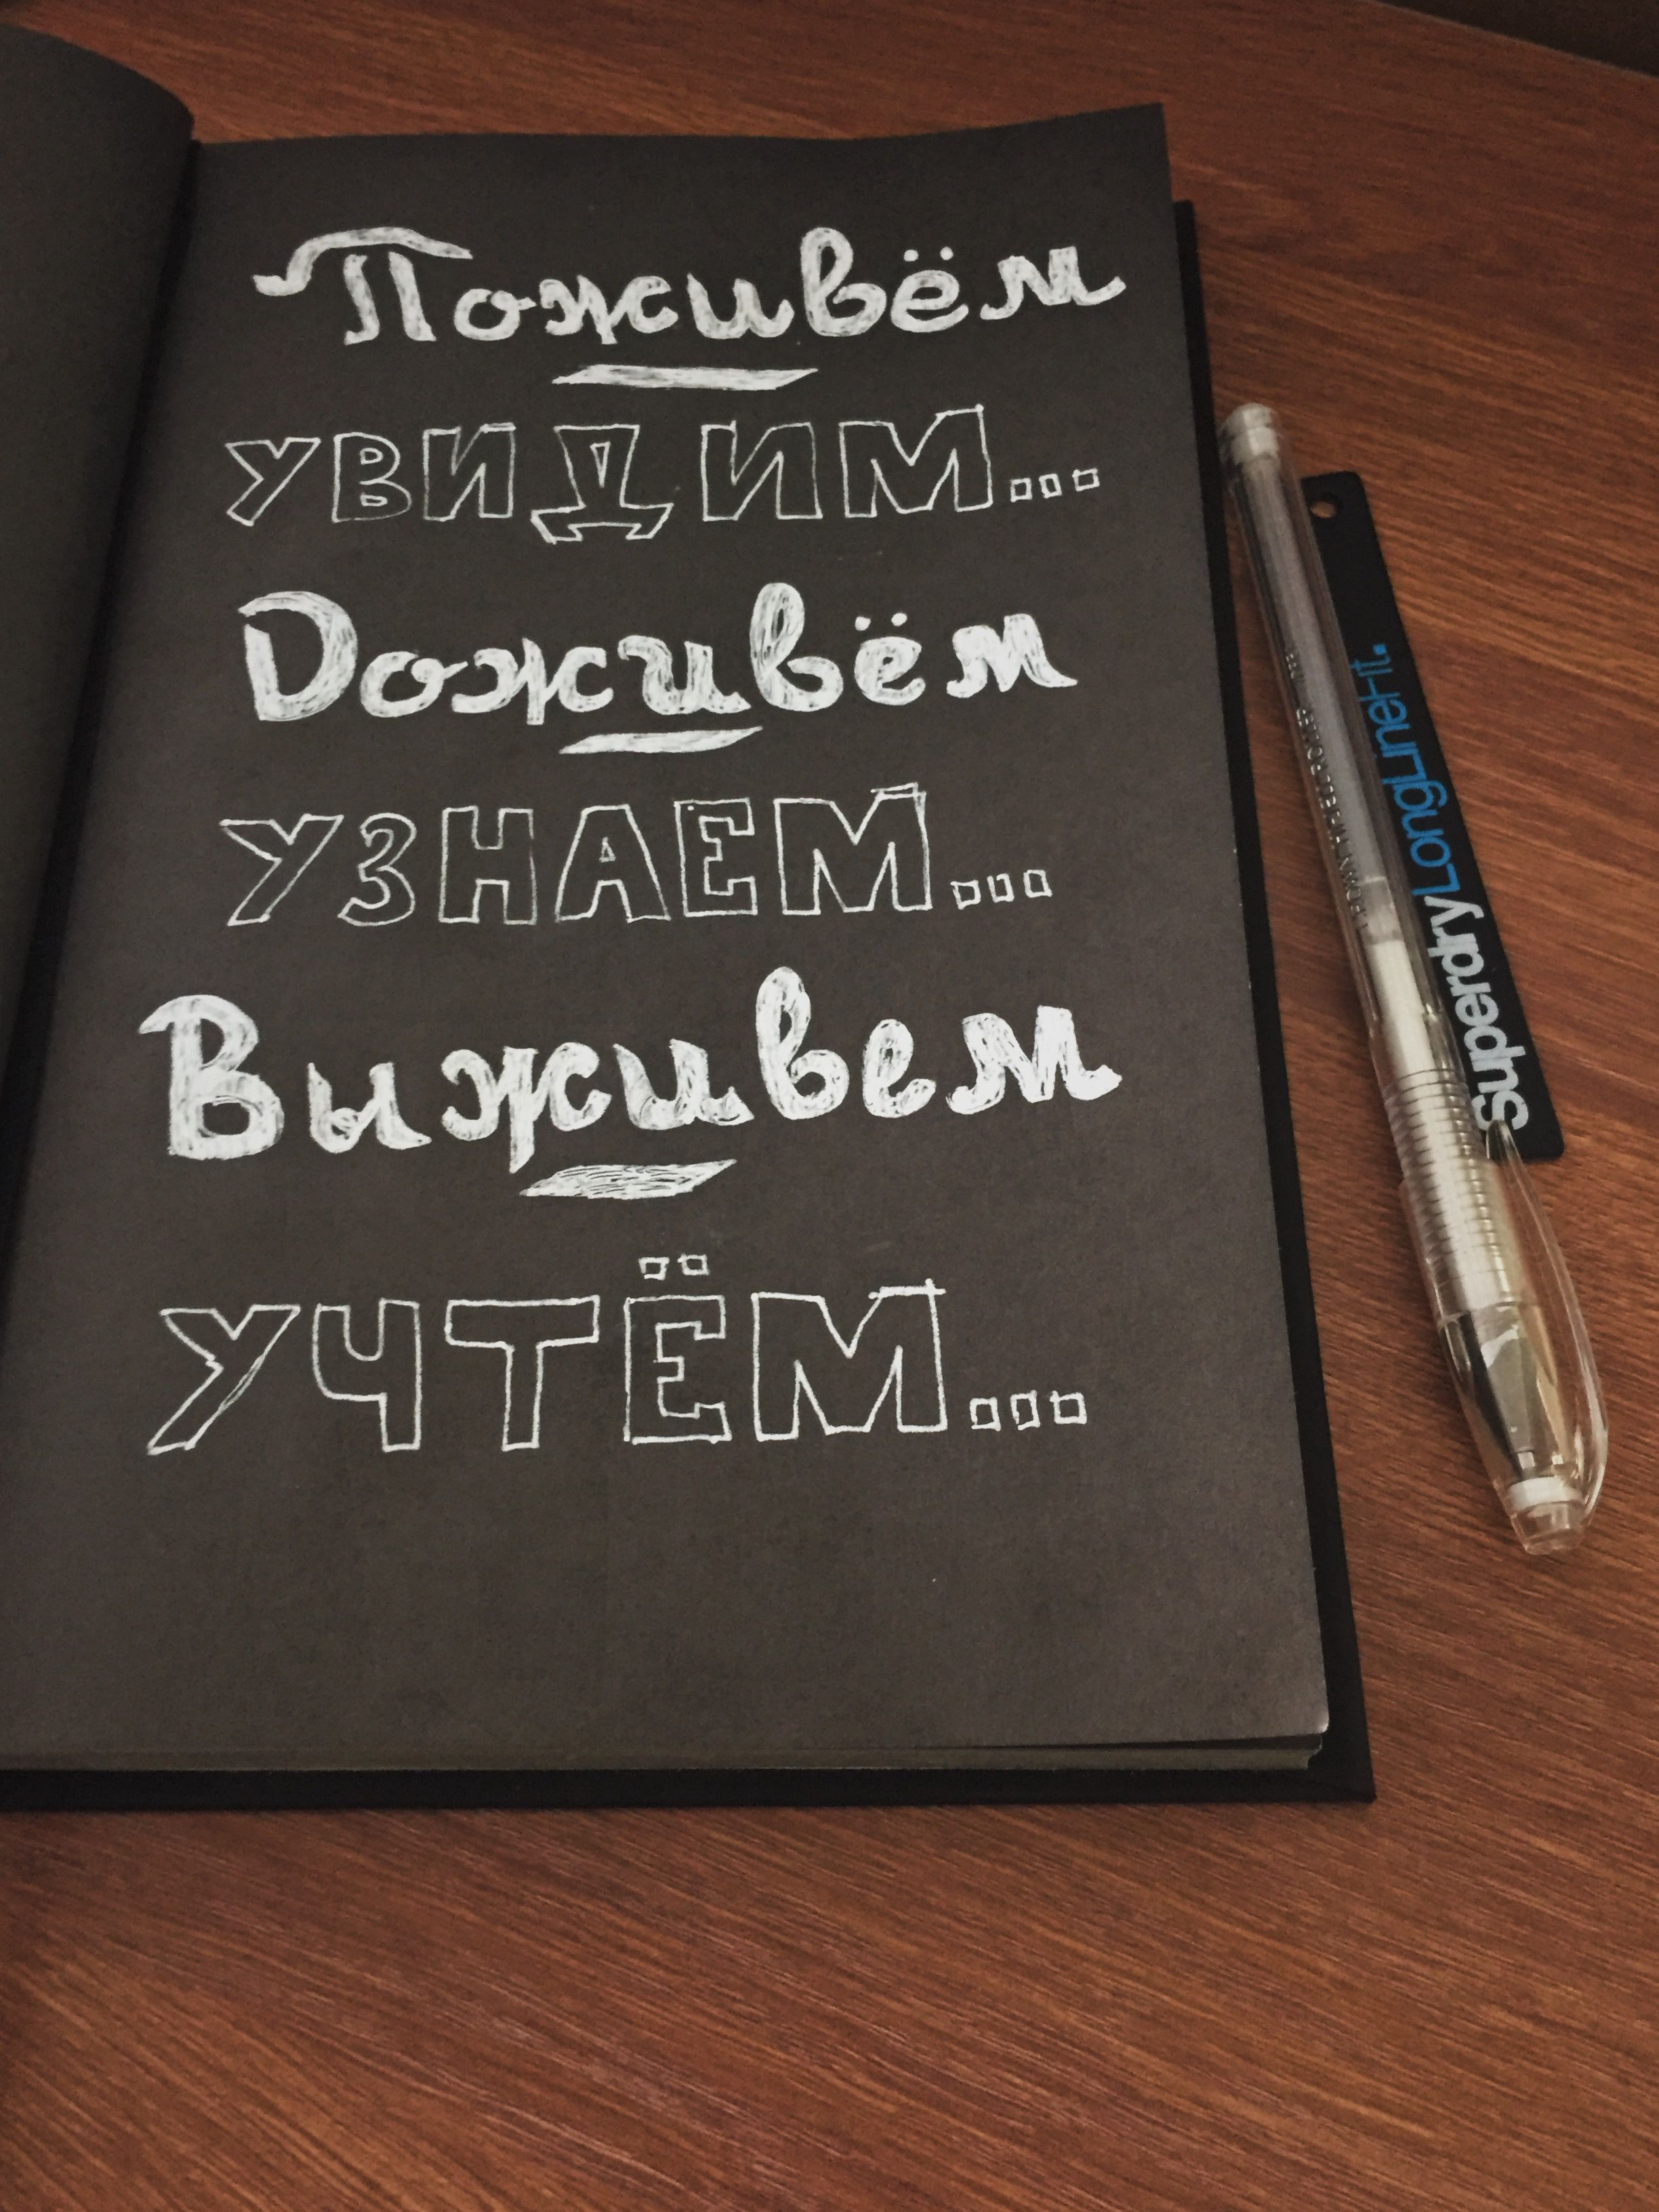 Поживём
УВИДИМ...
Доживём
УЗНАЕМ...
Выживем
УЧТЁМ...
Superdry Longline Hit.